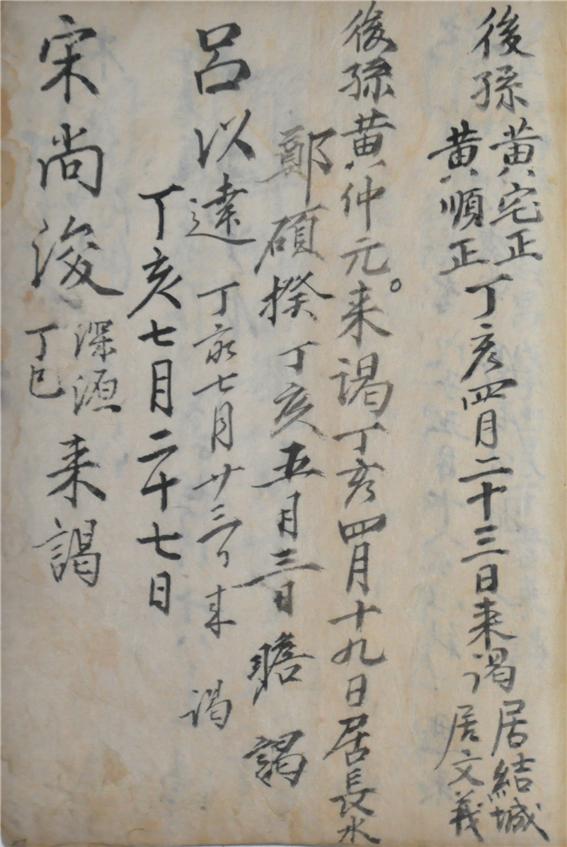 後孫 黄宅正 黄順正 丁亥四月二十三日来謁 居結城 居文義
後孫黄仲元来謁丁亥四月十九日居長水
鄭碩揆丁亥五月三日瞻謁
呂以達丁亥七月廿三日来謁
丁亥七月二十七日
宋尚浚 深源 丁巳 来謁